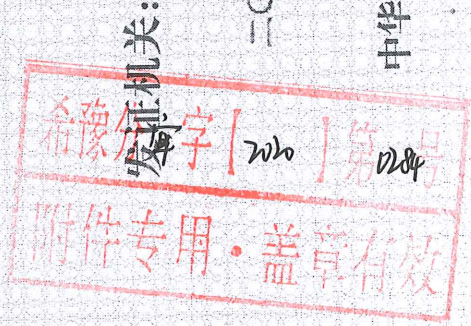 发证机关:
二〇
中华
希豫分审字[2020]第0284号
附件专用·盖章有效